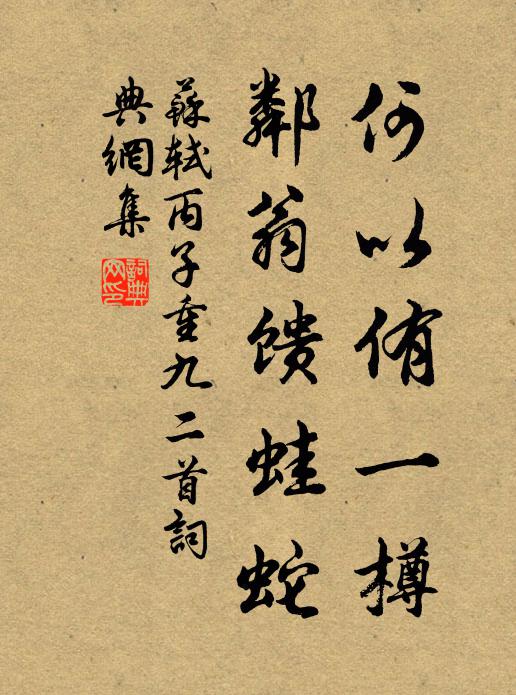 何以侑一樽
鄰翁馈蛙蛇
蘇軾丙子重九二首詞
典網集
詞典網印